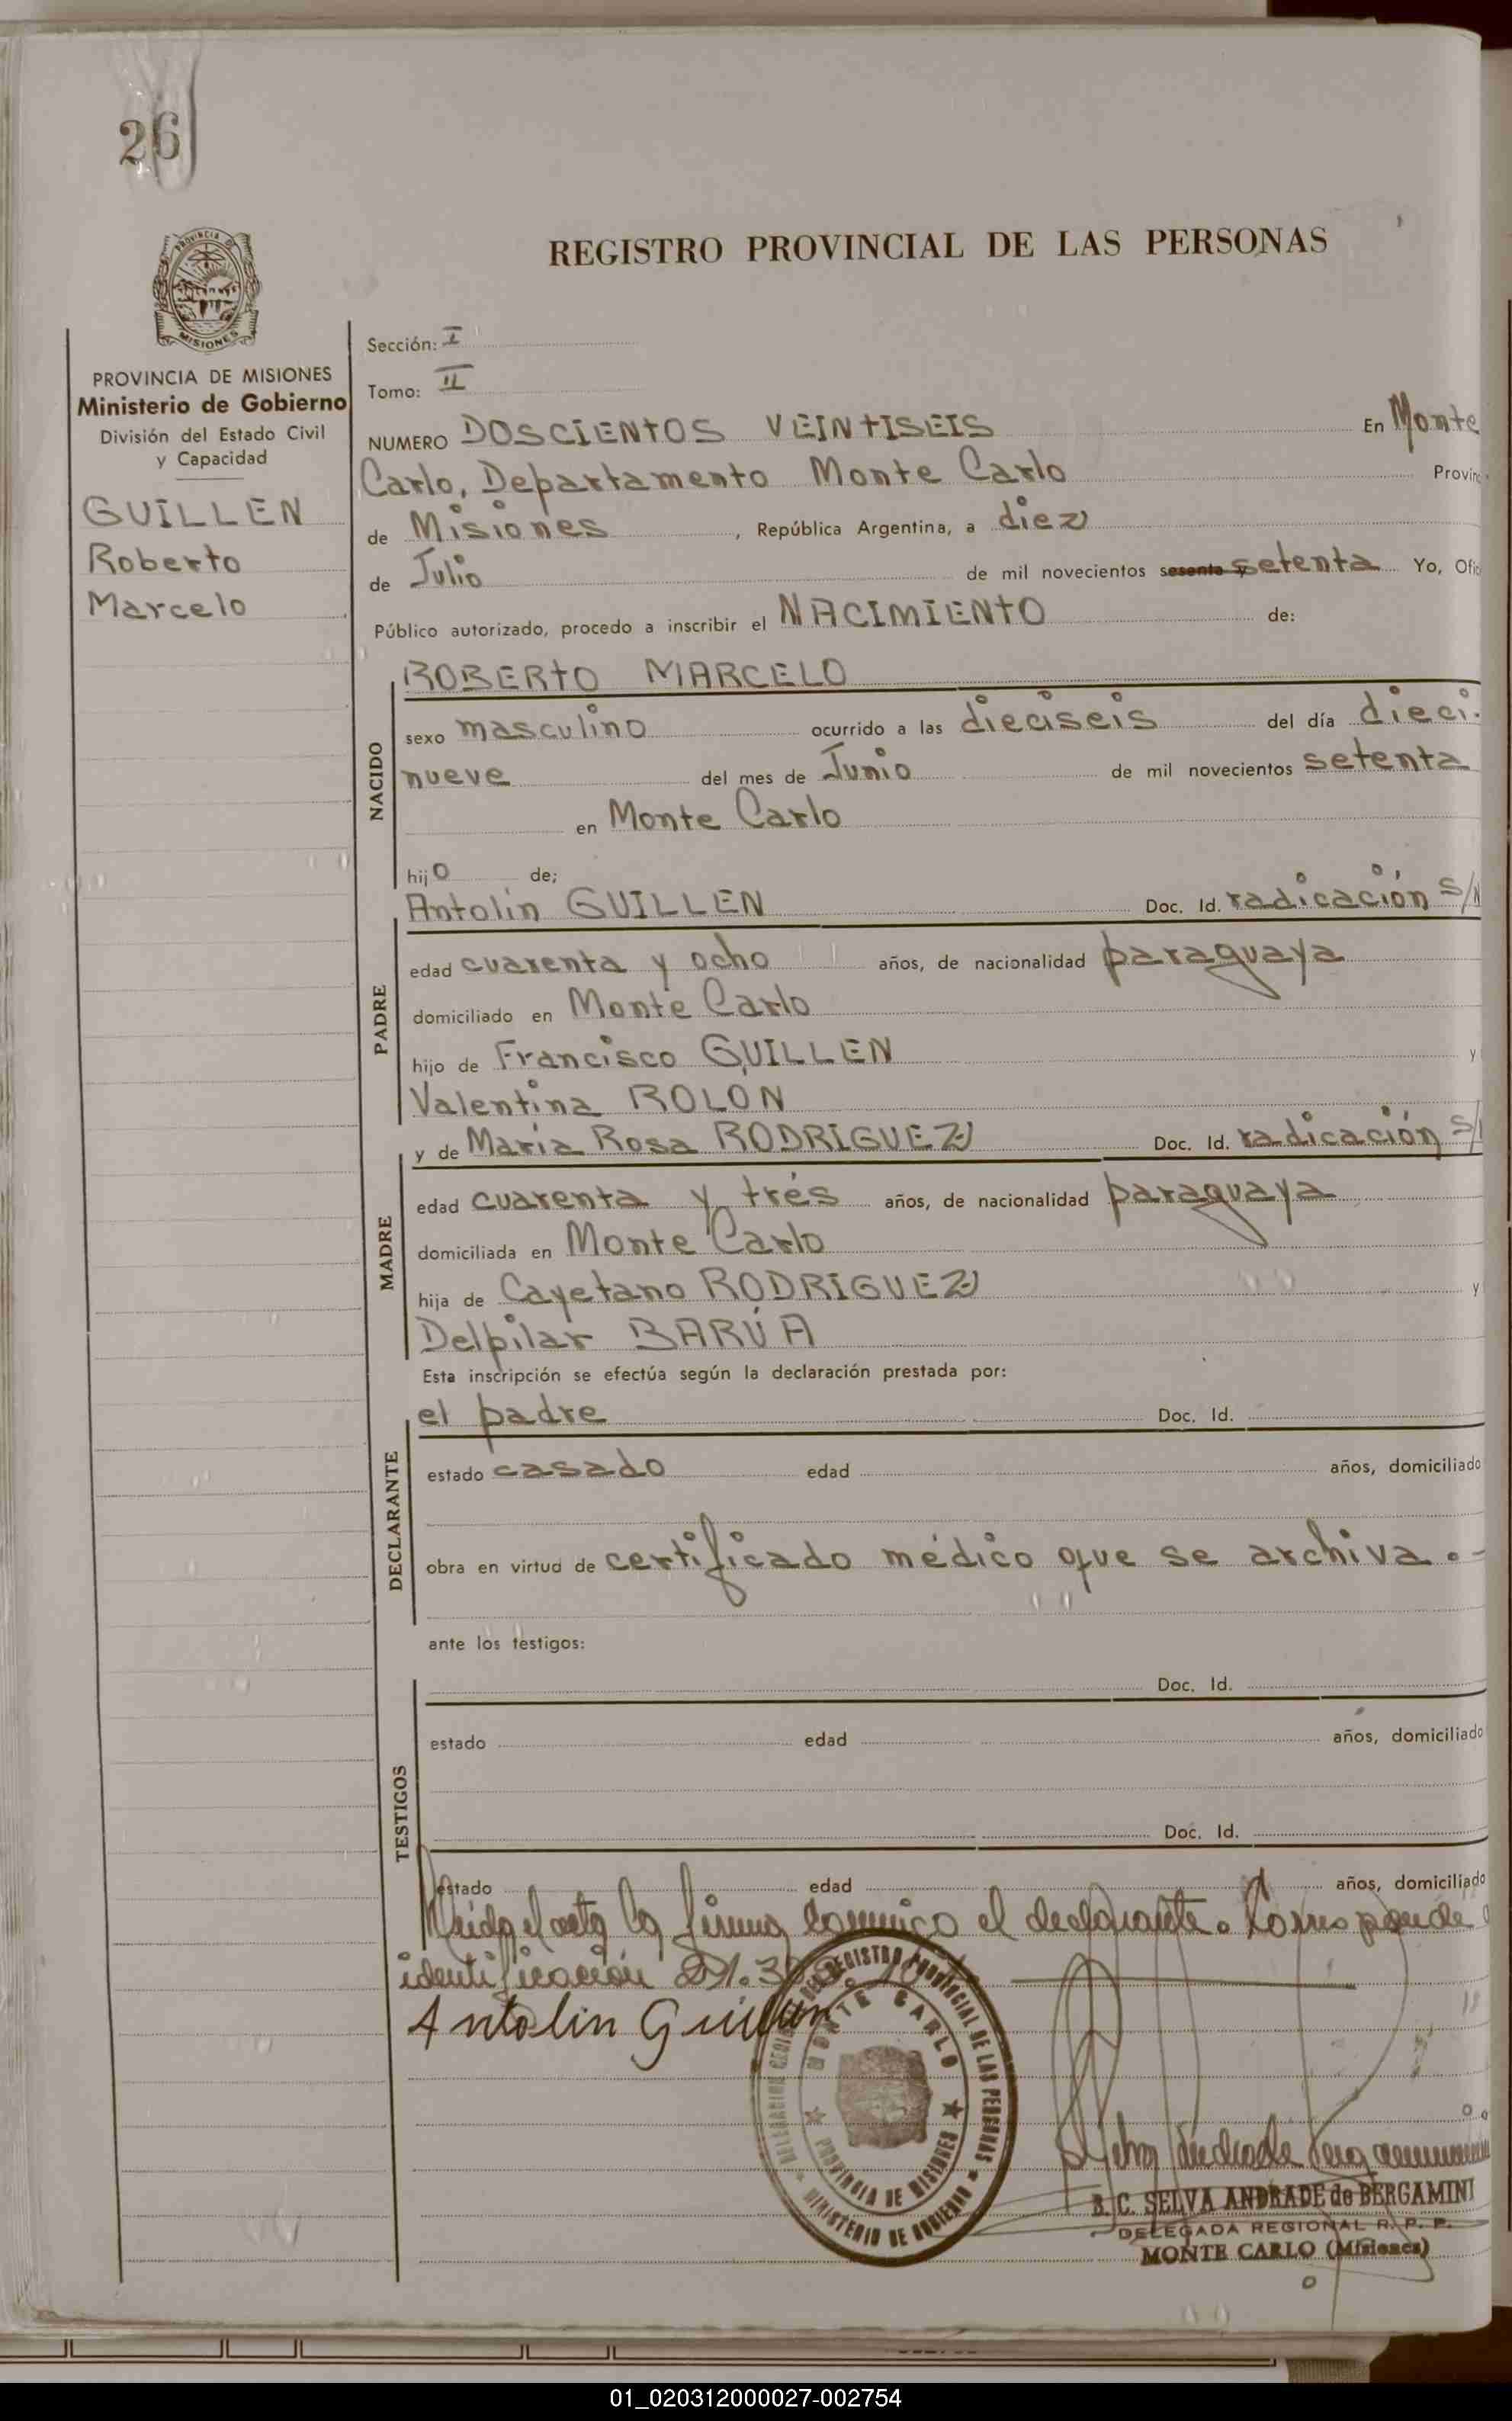 26
REGISTRO PROVINCIAL DE LAS PERSONAS
PROVINCIA DE MISIONES
Ministerio de Gobierno
División del Estado Civil
y Capacidad
GUILLEN
Roberto
Marcelo
Sección: I
Tomo: II
NUMERO DOSCIENTOS VEINTISEIS En Monte
Carlo, Departamento Monte Carlo Provinc
de Misiones, República Argentina, a diez
de Julio de mil novecientos sesenta y setenta Yo, Ofic
Público autorizado, procedo a inscribir el NACIMIENTO de:
NACIDO
ROBERTO MARCELO
sexo masculino ocurrido a las dieciseis del día dieci-
nueve del mes de Junio de mil novecientos setenta
en Monte Carlo
hijo de;
PADRE
Antolín GUILLEN Doc. Id. radicación S/N
edad cuarenta y ocho años, de nacionalidad paraguaya
domiciliado en Monte Carlo
hijo de Francisco GUILLEN y
Valentina ROLON
y de María Rosa RODRIGUEZ Doc. Id. radicación S/
MADRE
edad cuarenta y trés años, de nacionalidad paraguaya
domiciliada en Monte Carlo
hija de Cayetano RODRIGUEZ y
Delpilar BARÚA
Esta inscripción se efectúa según la declaración prestada por:
DECLARANTE
el padre Doc. Id.
estado casado edad años, domiciliado
obra en virtud de certificado médico que se archiva.-
ante los testigos:
TESTIGOS
Doc. Id.
estado edad años, domiciliado
Doc. Id.
estado edad años, domiciliado
Leída el acta la firma conmigo el declarante. Corresponde
identificación
Antolin Guillen
REGISTRO PROVINCIAL DE LAS PERSONAS
MONTE CARLO
PROVINCIA DE MISIONES
MINISTERIO DE GOBIERNO
B. C. SELVA ANDRADE de BERGAMINI
DELEGADA REGIONAL R. P. P.
MONTE CARLO (Misiones)
01_020312000027-002754